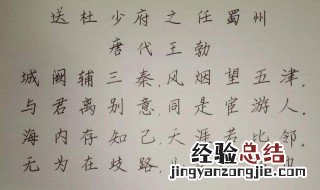 送杜少府之任蜀州
唐代王勃
城阙辅三秦,风烟望五津,
与君离别意,同是宦游人,
海内存知己,天涯若比邻,
无为在歧路,
经验总结